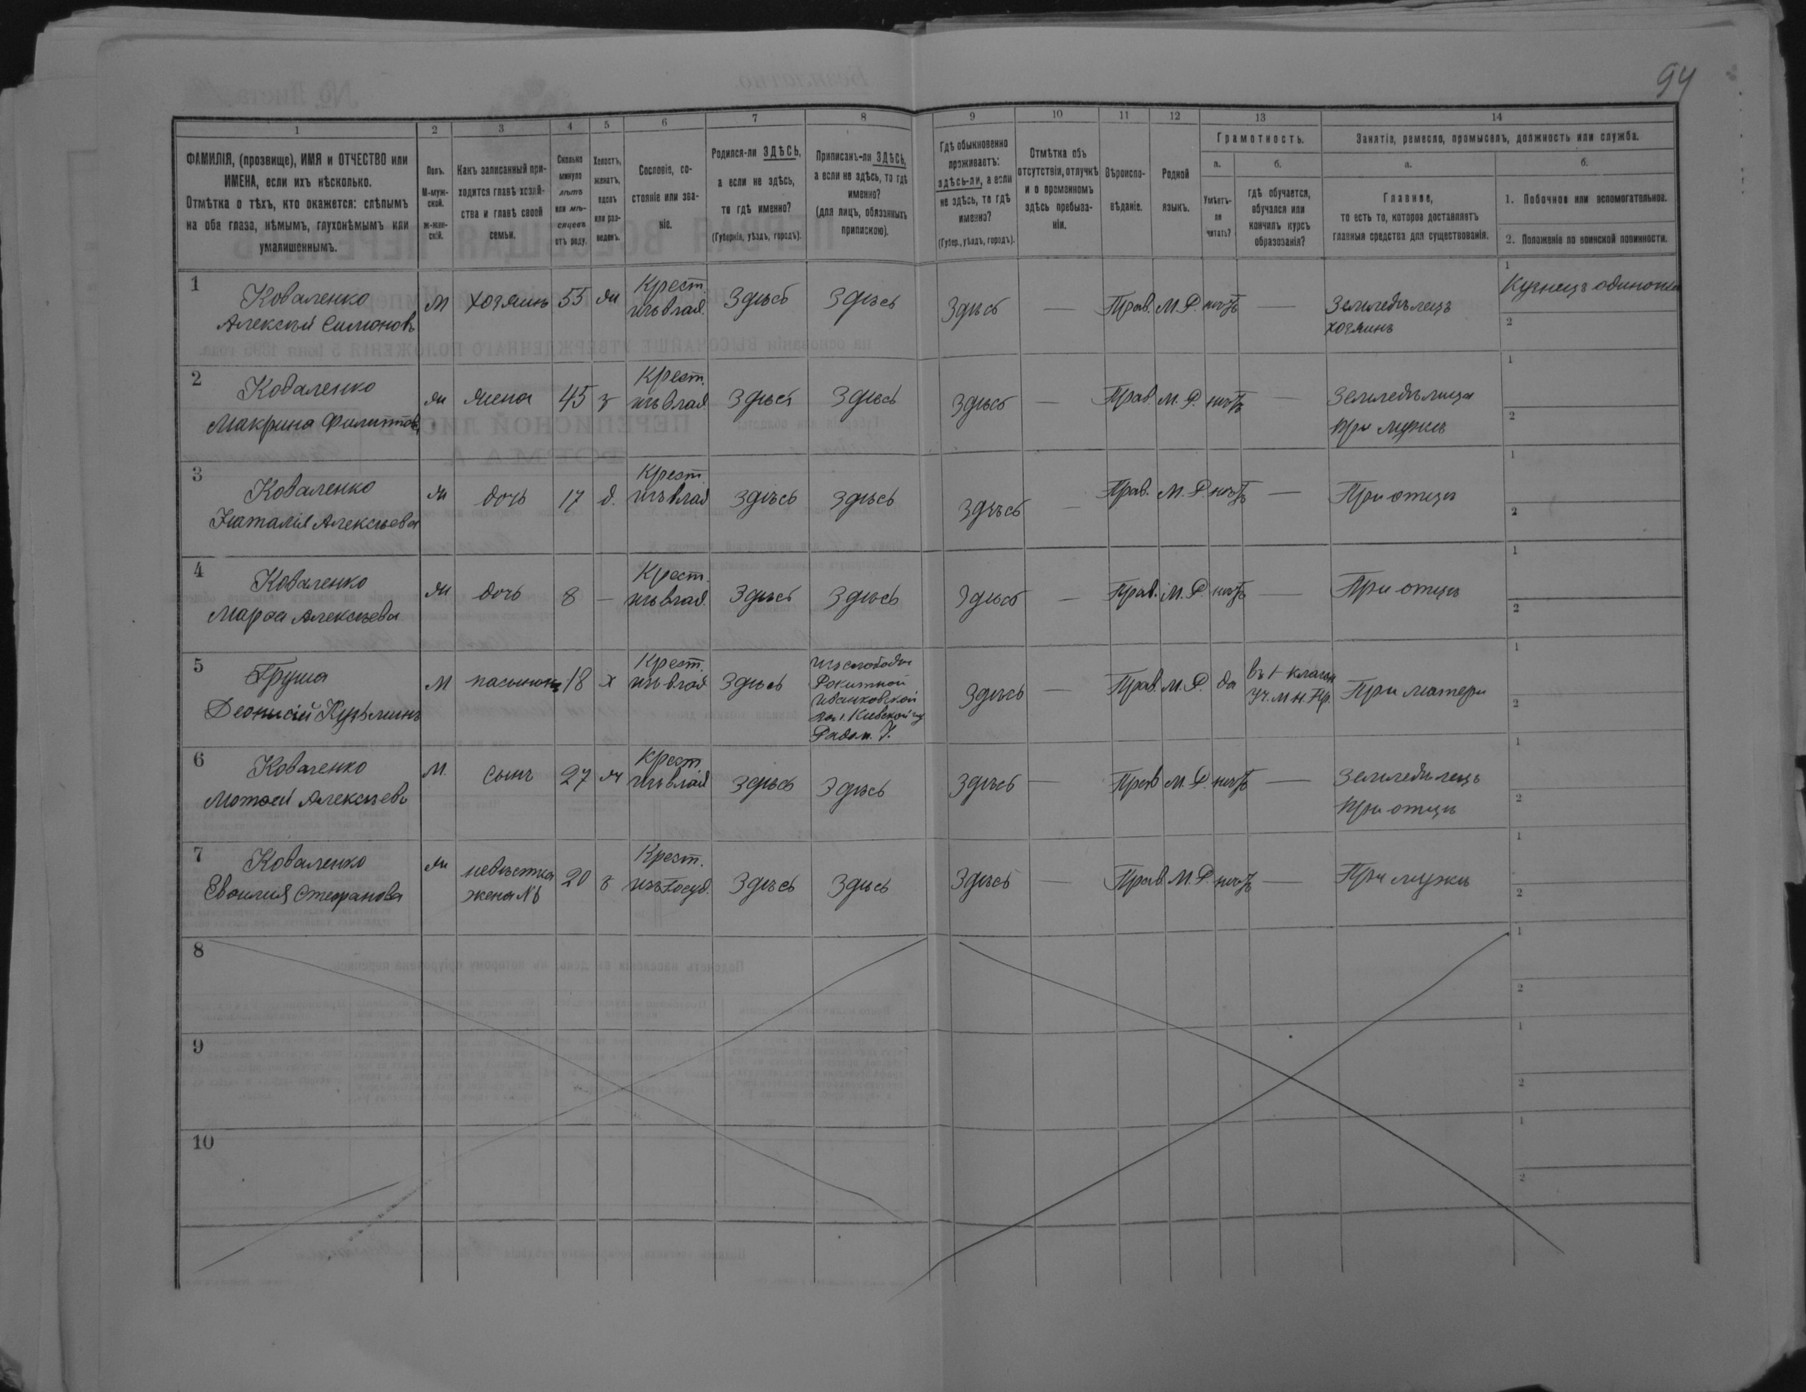 94
1
2
3
4
5
6
7
8
9
10
11
12
13
14
ФАМИЛІЯ, (прозвище), ИМЯ и ОТЧЕСТВО или
ИМЕНА, если ихъ нѣсколько.
Отмѣтка о тѣхъ, кто окажется: слѣпымъ
на оба глаза, нѣмымъ, глухонѣмымъ или
умалишеннымъ.
Полъ.
М-муж-
ской.
Ж-жен-
скій.
Какъ записанный при-
ходится главѣ хозяй-
ства и главѣ своей
семьи.
Сколько
минуло
лѣтъ
или мѣ-
сяцевъ
отъ роду.
Холостъ,
женатъ,
вдовъ
или раз-
веденъ.
Сословіе, со-
стояніе или зва-
ніе.
Родился-ли ЗДѢСЬ,
а если не здѣсь,
то гдѣ именно?
(Губернія, уѣздъ, городъ).
Приписанъ-ли ЗДѢСЬ,
а если не здѣсь, то гдѣ
именно?
(для лицъ, обязанныхъ
припискою).
Гдѣ обыкновенно
проживаетъ:
здѣсь-ли, а если
не здѣсь, то гдѣ
именно?
(Губер., уѣздъ, городъ).
Отмѣтка объ
отсутствіи, отлучкѣ
и о временномъ
здѣсь пребыва-
ніи.
Вѣроиспо-
вѣданіе.
Родной
языкъ.
Грамотность.
а.
Умѣетъ-
ли
читать?
б.
гдѣ обучается,
обучался или
кончилъ курсъ
образованія?
Занятіе, ремесло, промыселъ, должность или служба.
а.
Главное,
то есть то, которое доставляетъ
главныя средства для существованія.
б.
1. Побочное или вспомогательное.
2. Положеніе по воинской повинности.
1
Коваленко
Алексѣй Симоновъ
М хозяинъ 55 ж
Крест.
изъ влад.
Здѣсь Здѣсь Здѣсь — Прав. М.Р. нѣтъ —
Земледѣлецъ
хозяинъ
1
Кузнецъ одиночка
2
2
Коваленко
Макрина Филиппов
ж жена 45 з
Крест.
изъ влад.
Здѣсь Здѣсь Здѣсь — Прав. М.Р. нѣтъ —
Земледѣлица
При мужѣ
1
2
3
Коваленко
Наталія Алексѣева
ж дочь 17 д.
Крест.
изъ влад.
Здѣсь Здѣсь Здѣсь — Прав. М.Р. нѣтъ —
При отцѣ
1
2
4
Коваленко
Марѳа Алексѣева
ж дочь 8 —
Крест.
изъ влад.
Здѣсь Здѣсь Здѣсь — Прав. М.Р. нѣтъ —
При отцѣ
1
2
5
Груша
Деонисій Кузьминъ
М пасынокъ 18 х
Крест.
изъ влад.
Здѣсь
Изъ слободы
Рокитной
Иванковской
вол. Кіевской
Радом. У.
Здѣсь — Прав. М.Р. да
въ 1 классн.
Уч. М.Н.Пр.
При матери
1
2
6
Коваленко
Матѳей Алексѣевъ
М. сынъ 27 ж
Крест.
изъ влад.
Здѣсь Здѣсь Здѣсь — Прав М.Р. нѣтъ —
Земледѣлецъ
При отцѣ
1
2
7
Коваленко
Евфимія Стефанова
ж
невѣстка
жена № 6
20 з
Крест.
изъ Госуд.
Здѣсь Здѣсь Здѣсь — Прав М.Р. нѣтъ —
При мужѣ
1
2
8
1
2
9
1
2
10
1
2